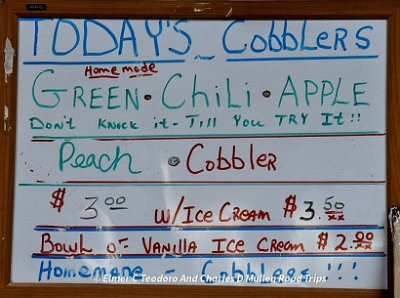 TODAY'S Cobblers
Homemade
GREEN • CHiLi • APPLE
Don't Knock it - Till You TRY It !!
Peach • Cobbler
$ 3.00 W/ICE CREAM $3.50/xx
BOWL OF VANILLA ICE CREAM $2.00/xx
Homemade - Cobblers !!!
Elmer C Teodoro And Charles D Mullen Road Trips